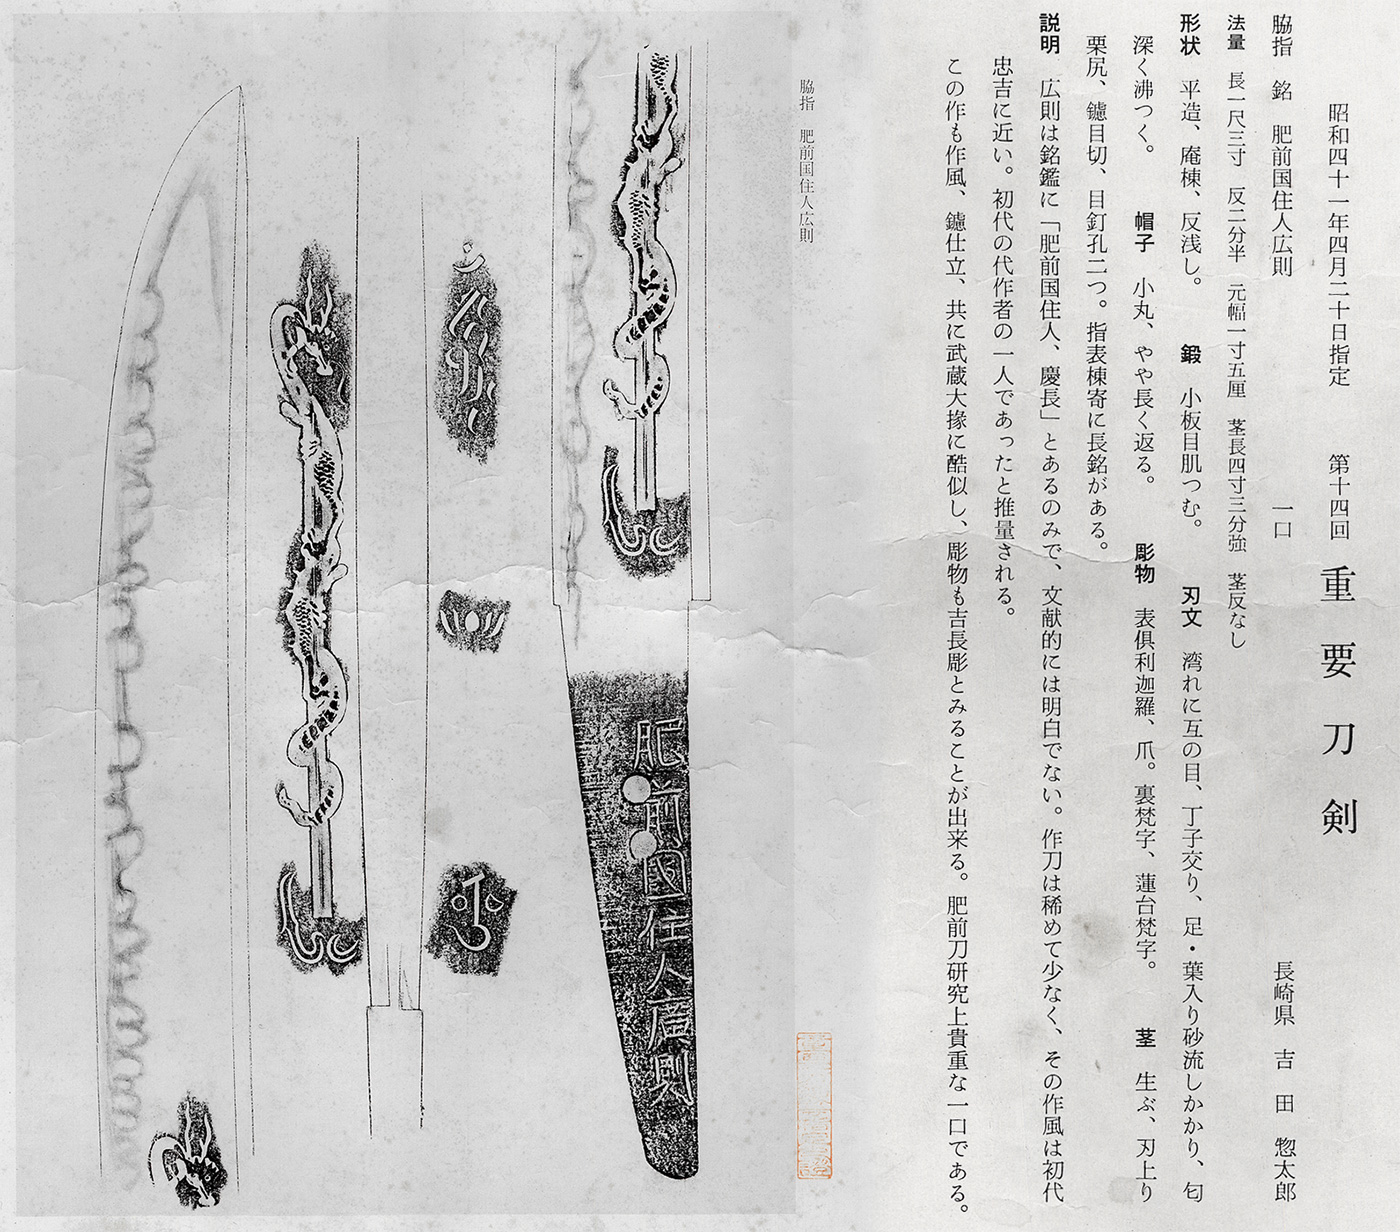 昭和四十一年四月二十日指定　第十四回　重要刀剣
脇指　銘　肥前国住人広則　一口　長崎県　吉田　惣太郎
法量　長一尺三寸　反二分半　元幅一寸五厘　茎長四寸三分強　茎反なし
形状　平造、庵棟、反浅し。　鍛　小板目肌つむ。　刃文　湾れに互の目、丁子交り、足・葉入り砂流しかかり、匂
深く沸つく。　帽子　小丸、やや長く返る。　彫物　表倶利迦羅、爪。裏梵字、蓮台梵字。　茎　生ぶ、刃上り
栗尻、鑢目切、目釘孔二つ。指表棟寄に長銘がある。
説明　広則は銘鑑に「肥前国住人、慶長」とあるのみで、文献的には明白でない。作刀は稀めて少なく、その作風は初代
忠吉に近い。初代の代作者の一人であったと推量される。
この作も作風、鑢仕立、共に武蔵大掾に酷似し、彫物も吉長彫とみることが出来る。肥前刀研究上貴重な一口である。
脇指　肥前国住人広則
肥前国住人廣則